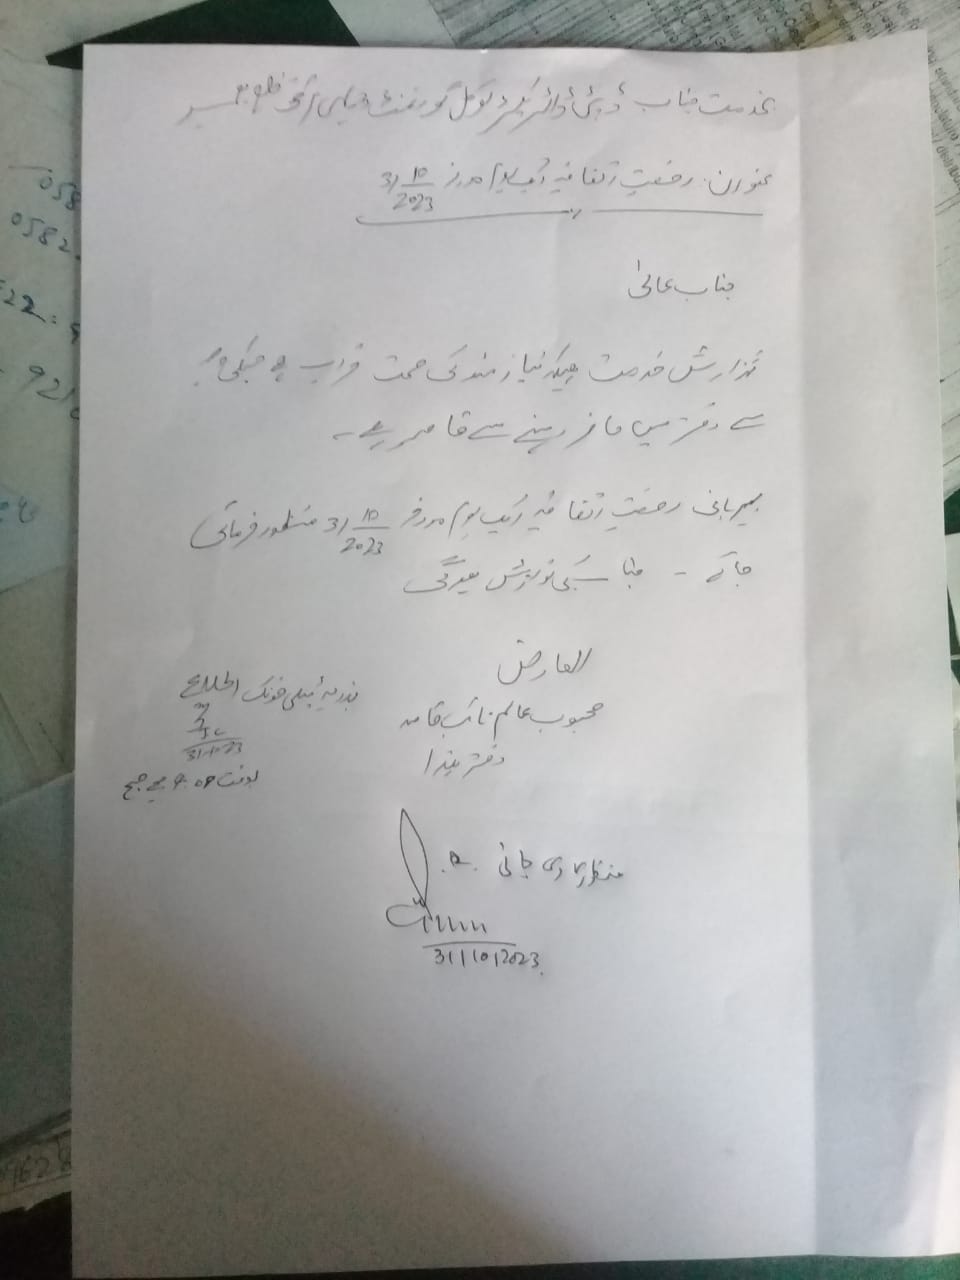 بخدمت جناب ڈپٹی ڈائریکٹر لوکل گورنمنٹ دیہی ترقی ضلع
عنوان: رخصت اتفاقیہ ایک یوم مورخہ 31/10/2023
جناب عالیٰ
گزارش خدمت ہیکہ نیازمند کی صحت خراب ہے جسکی وجہ
سے دفتر میں حاضر ہونے سے قاصر ہے۔
بمہربانی رخصت اتفاقیہ ایک یوم مورخہ 31/10/2023 منظور فرمائی
جائے - عین نوازش ہوگی
العارض
محبوب عالم نائب قاصد
دفتر ہذا
بذریعہ ٹیلی فونک اطلاع
31-10-23
بوقت 9:09 بجے صبح
منظور کی جاتی ہے.
31/10/2023